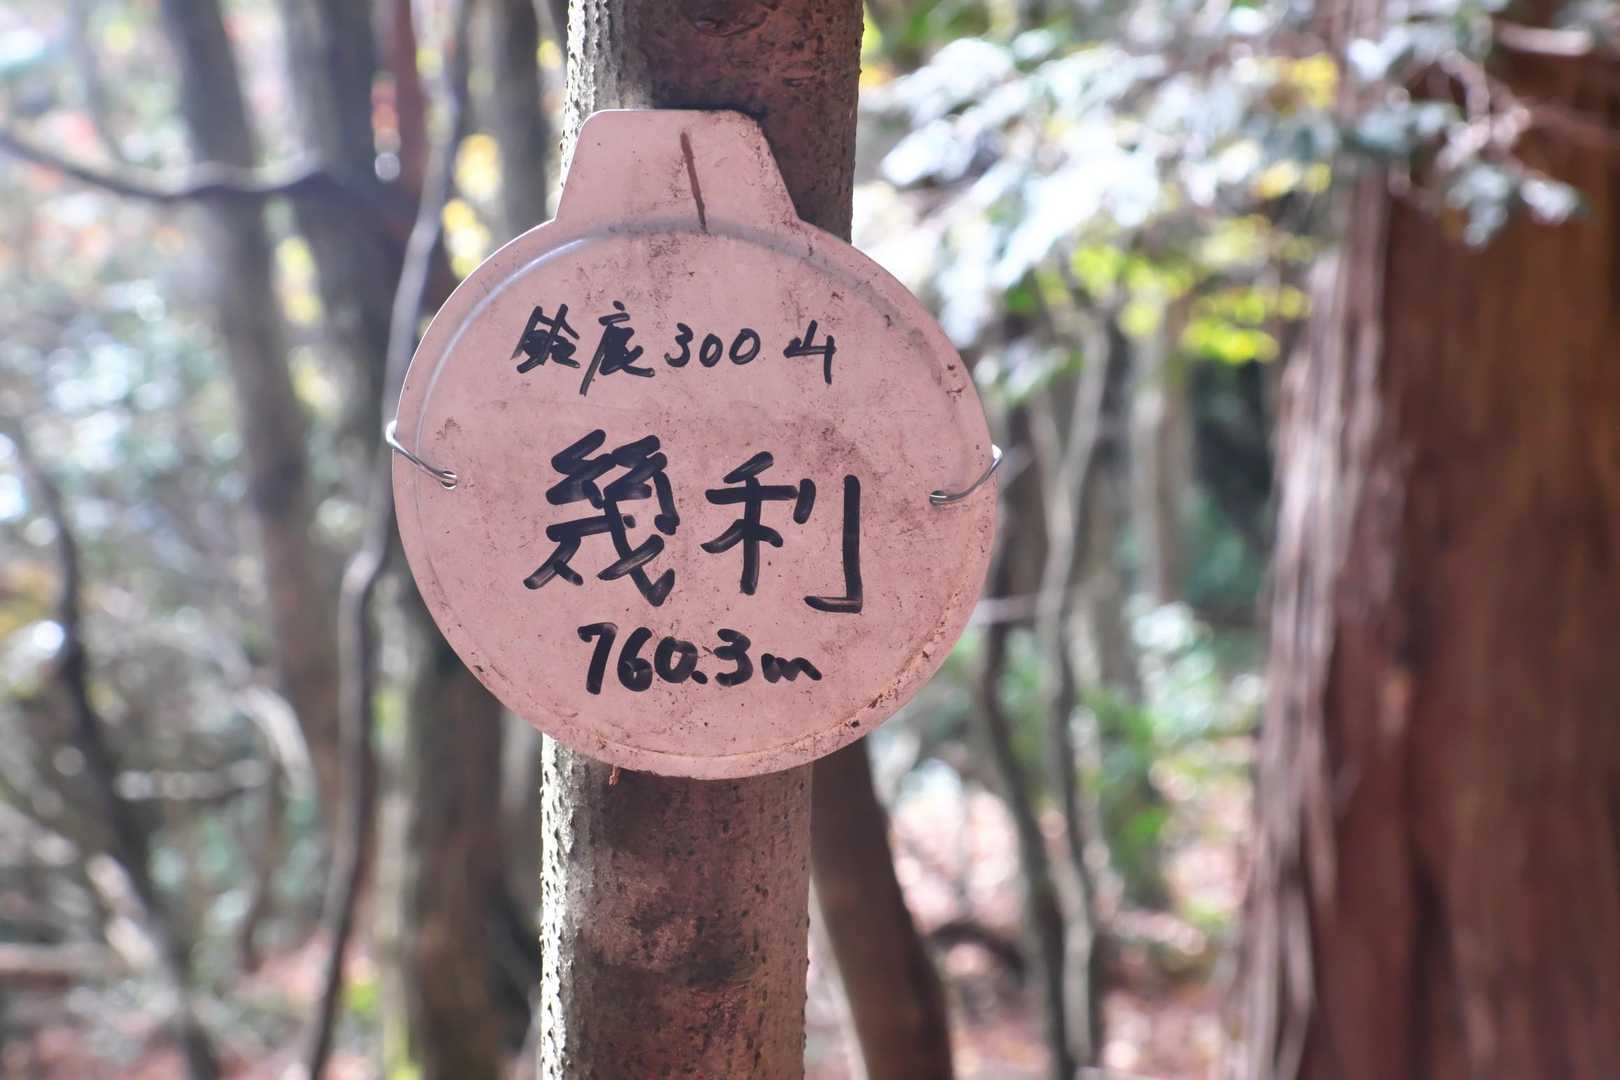 鈴鹿300山
幾利
760.3m